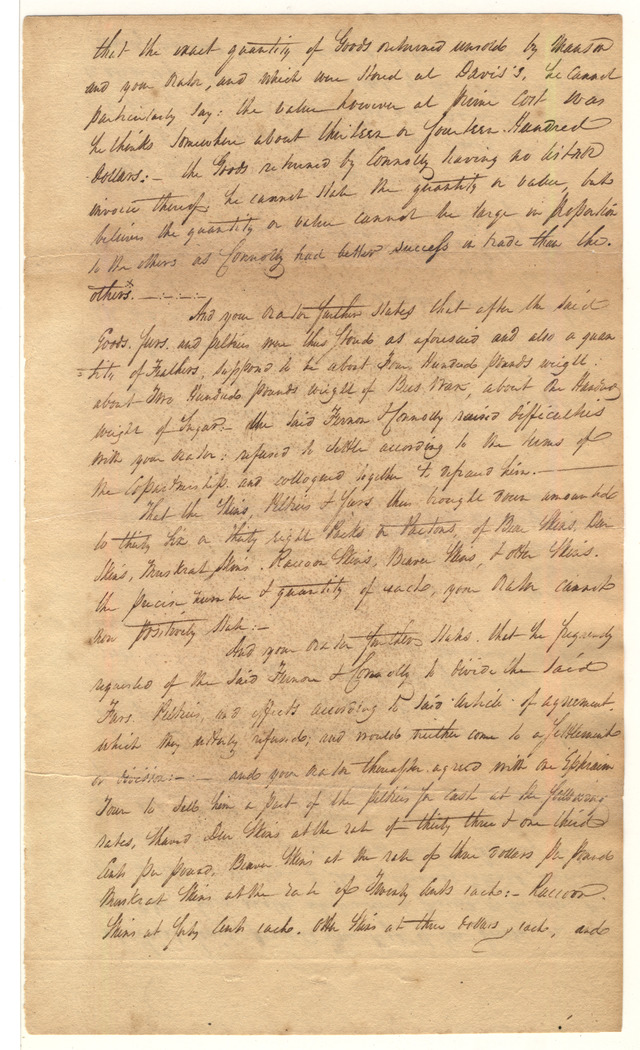 that the exact quantity of Goods returned unsold by Manson
and your Orator, and which were stored at Davis's, he cannot
particularly say: the value however at prime Cost was
he thinks somewhere about thirteen or fourteen Hundred
Dollars:- the Goods returned by Connolly having no list and
invoice thereof, he cannot state the quantity or value, but
believes the quantity or value cannot be large in proportion
to the others as Connolly had better success in trade than the
others. - - - -
And your Orator further states that after the said
Goods, furs and peltries were thus stored as aforesaid and also a quan
=tity of Feathers, supposed to be about Four Hundred pounds weight
about Two Hundred pounds weight of Bees Wax, about One Hundred
weight of Sugar:- the said Fernon & Connolly raised difficulties
with your Orator: refused to settle according to the terms of
the Copartnership and collogued together to defraud him.
That the Skins, Peltries & Furs then brought down amounted
to thirty six or thirty eight Packs or thereons, of Bear Skins, Deer
Skins, Muskrat Skins, Raccoon Skins, Beaver Skins, & otter Skins.
the precise number & quantity of each, your Orator cannot
now positively state:-
And your Orator further states that he frequently
requested of the said Fernon & Connolly to divide the said
Furs, Peltries, and effects according to said Article of agreement,
which they utterly refused; and would neither come to a Settlement
or division:- - and your Orator thereafter agreed with one Ephraim
to sell him a part of the peltries for cash at the following
rates, Shaved Deer Skins at the rate of thirty three & one third
Cents per pound, Beaver Skins at the rate of three dollars per pound
Muskrat Skins at the rate of Twenty Cents each:- Raccoon
Skins at forty Cents each. Otter Skins at three dollars each, and